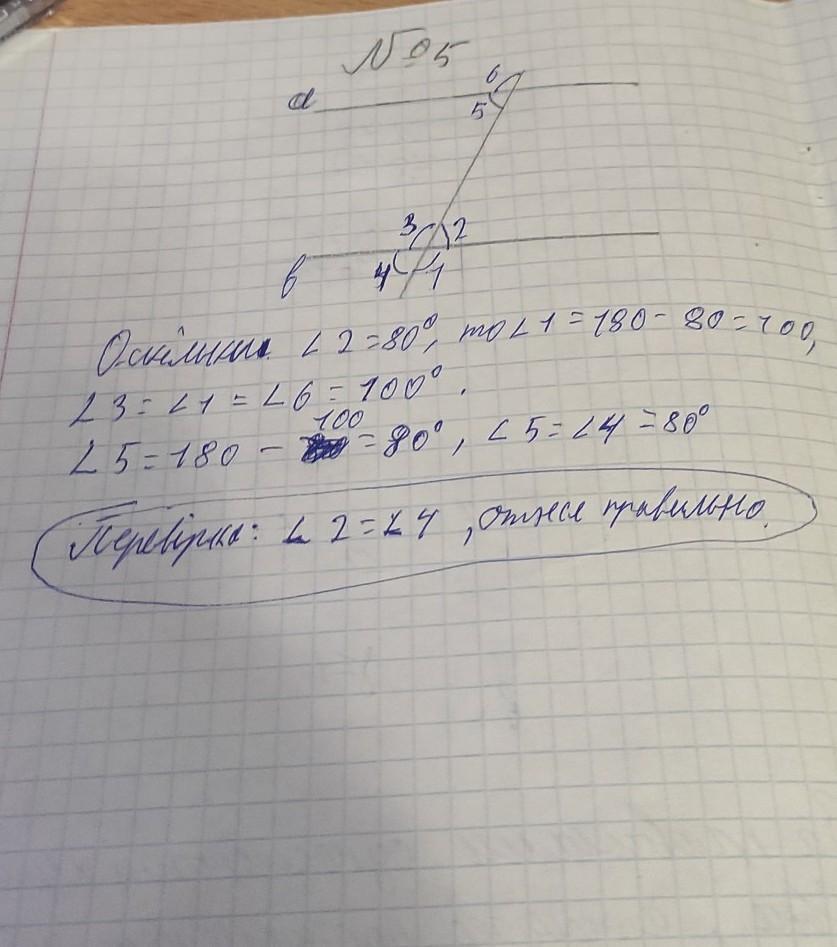 №5
a
6
5
3
2
в
4
1
Оскільки ∠2=80°, то ∠1=180-80=100,
∠3=∠1=∠6=100°.
100
∠5=180- =80°, ∠5=∠4=80°
Перевірка: ∠2=∠4, отже правильно.